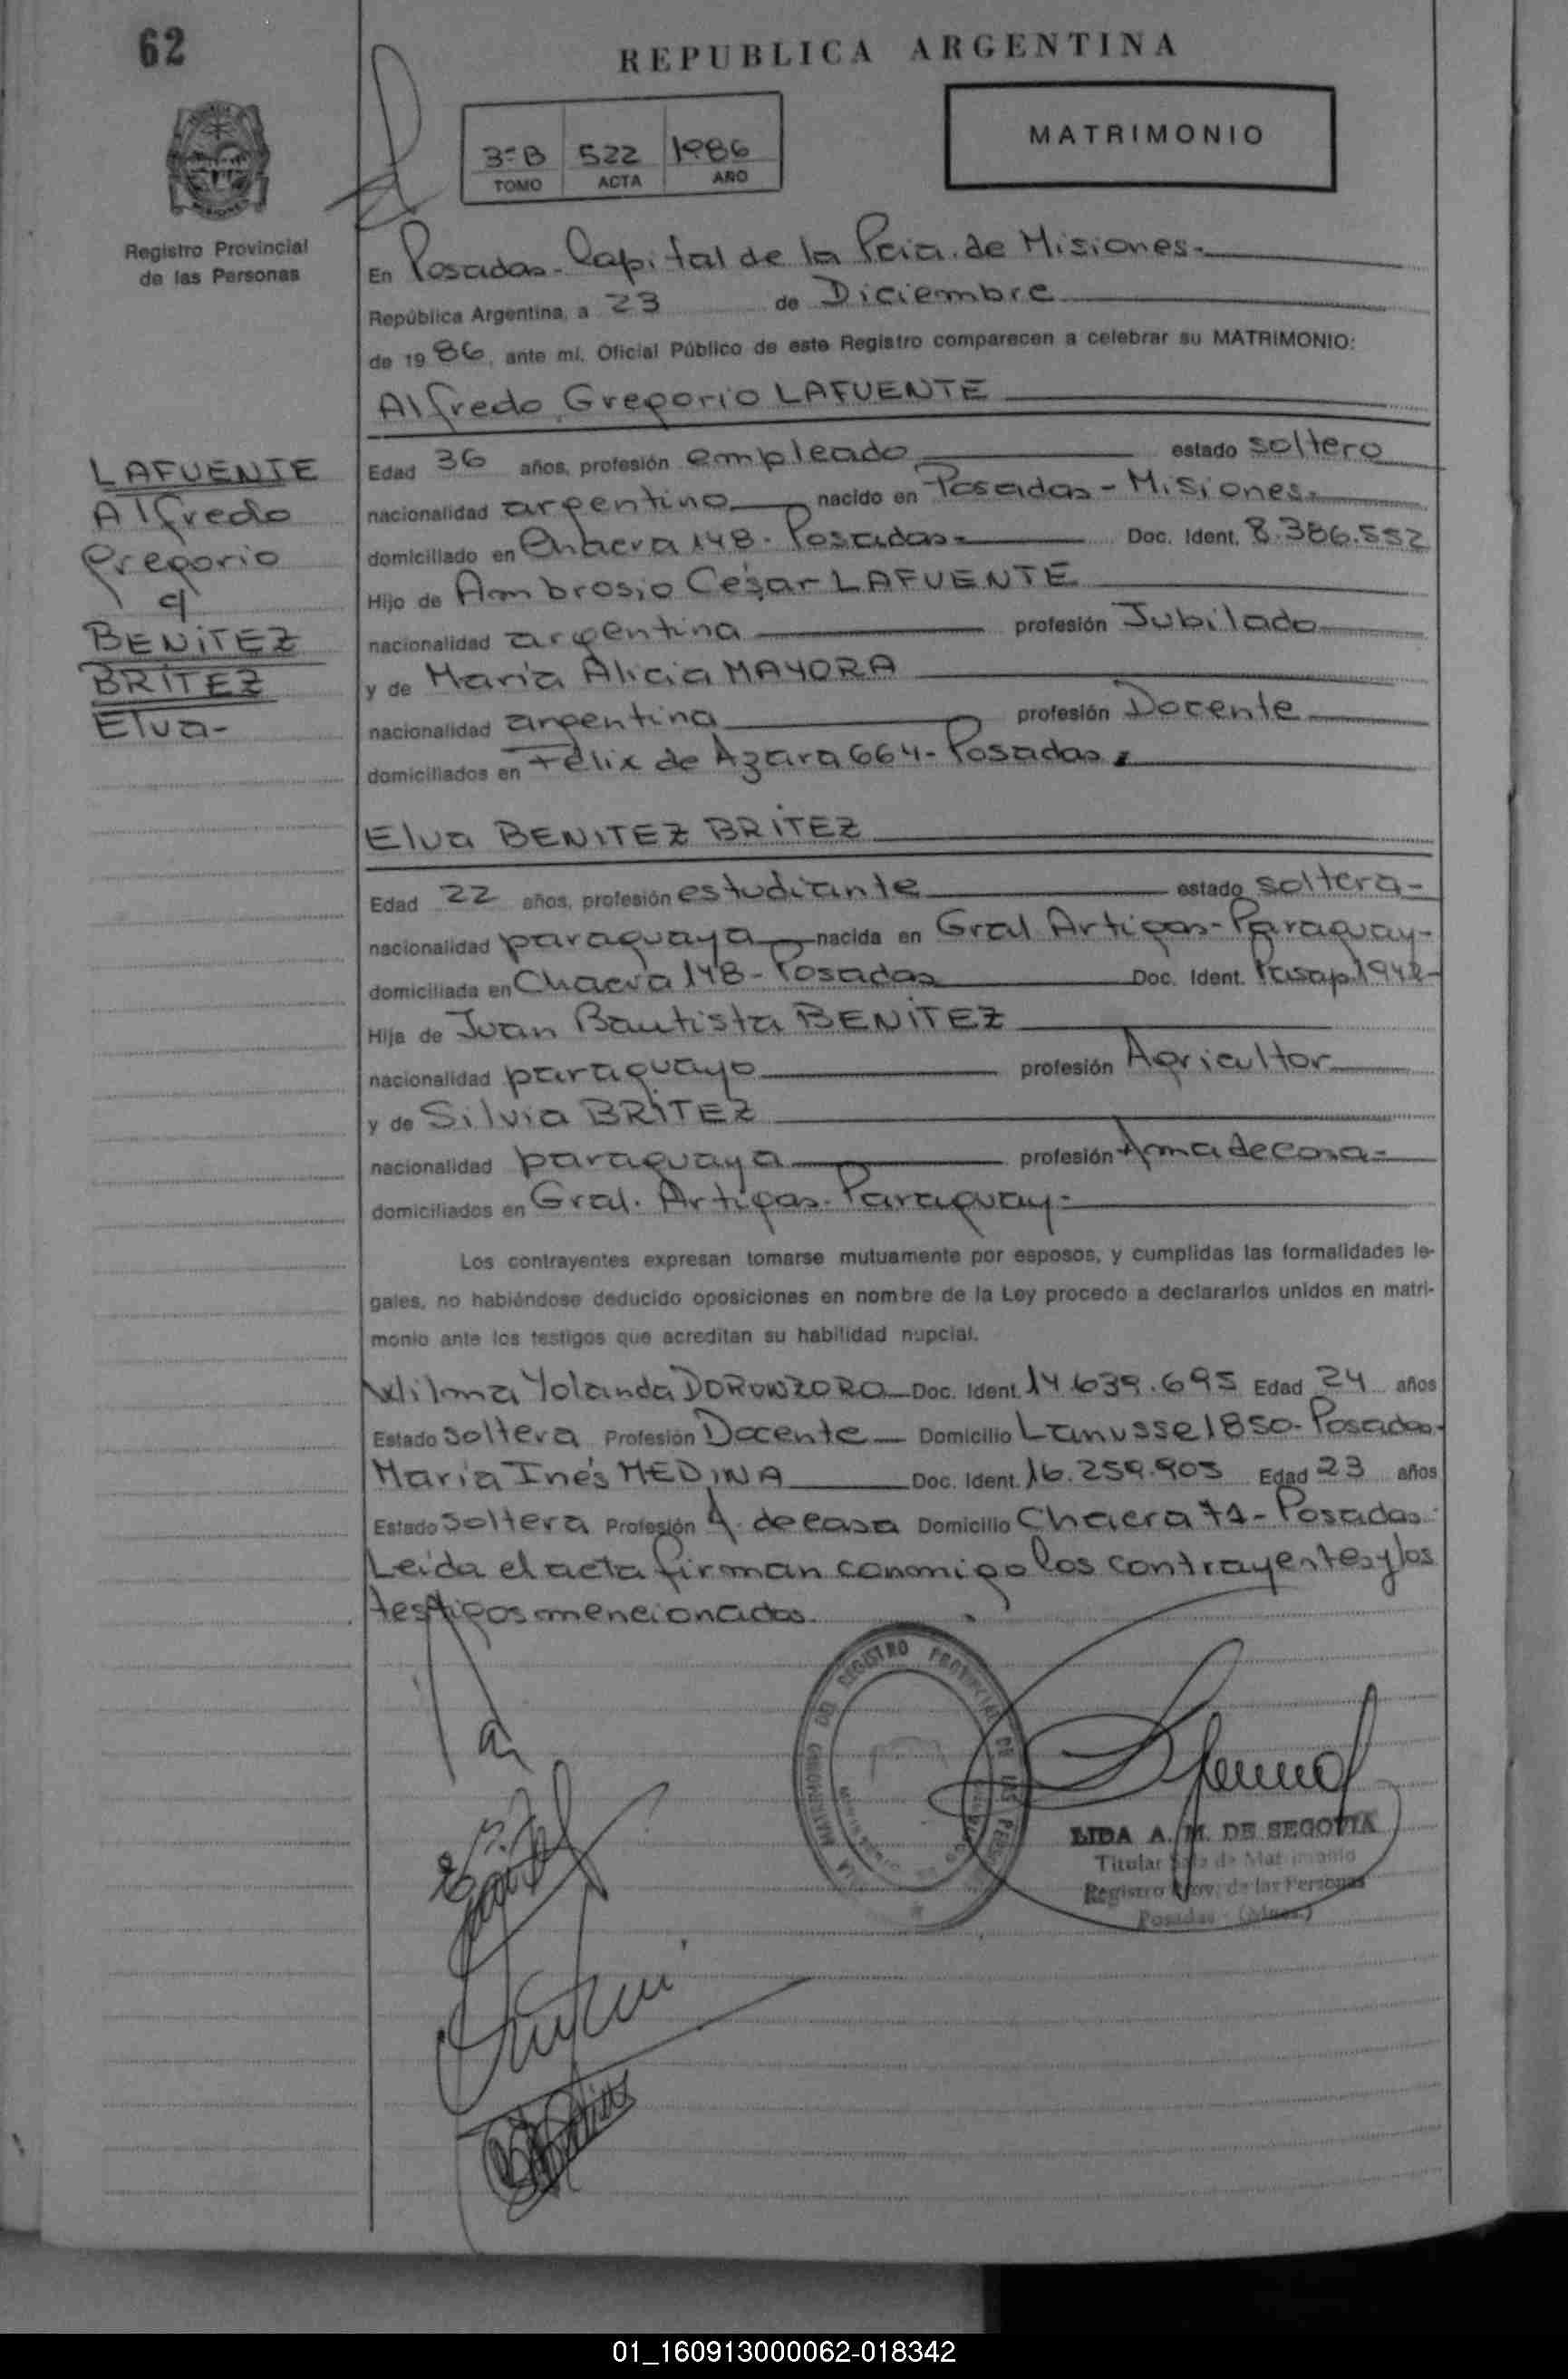 62
REPUBLICA ARGENTINA
3ºB 522 1986
TOMO ACTA AÑO
MATRIMONIO
Registro Provincial
de las Personas
En Posadas - Capital de la Pcia. de Misiones -
República Argentina, a 23 de Diciembre
de 1986, ante mí, Oficial Público de este Registro comparecen a celebrar su MATRIMONIO:
Alfredo Gregorio LAFUENTE
LAFUENTE
Alfredo
Gregorio
c/
BENITEZ
BRITEZ
Elva-
Edad 36 años, profesión empleado estado soltero
nacionalidad argentino nacido en Posadas - Misiones -
domiciliado en Chacra 148 - Posadas - Doc. Ident. 8.386.552
Hijo de Ambrosio César LAFUENTE
nacionalidad argentina profesión Jubilado
y de María Alicia MAYORA
nacionalidad argentina profesión Docente
domiciliados en Félix de Azara 664 - Posadas
Elva BENITEZ BRITEZ
Edad 22 años, profesión estudiante estado soltera -
nacionalidad paraguaya nacida en Gral Artigas - Paraguay -
domiciliada en Chacra 148 - Posadas Doc. Ident. Pasap.
Hija de Juan Bautista BENITEZ
nacionalidad paraguayo profesión Agricultor
y de Silvia BRITEZ
nacionalidad paraguaya profesión Ama de casa -
domiciliados en Gral. Artigas - Paraguay -
Los contrayentes expresan tomarse mutuamente por esposos, y cumplidas las formalidades le-
gales, no habiéndose deducido oposiciones en nombre de la Ley procedo a declararlos unidos en matri-
monio ante los testigos que acreditan su habilidad nupcial.
Wilma Yolanda DORONZORO Doc. Ident. 14.639.695 Edad 24 años
Estado soltera Profesión Docente Domicilio Lanusse 1850 - Posadas -
María Inés MEDINA Doc. Ident. 16.259.905 Edad 23 años
Estado soltera Profesión A. de casa Domicilio Chacra 71 - Posadas
Leída el acta firman conmigo los contrayentes y los
testigos mencionados.
LIDA A. M. DE SEGOVIA
Titular Sala de Matrimonio
Registro Prov. de las Personas
Posadas - (Mnes.)
01_160913000062-018342